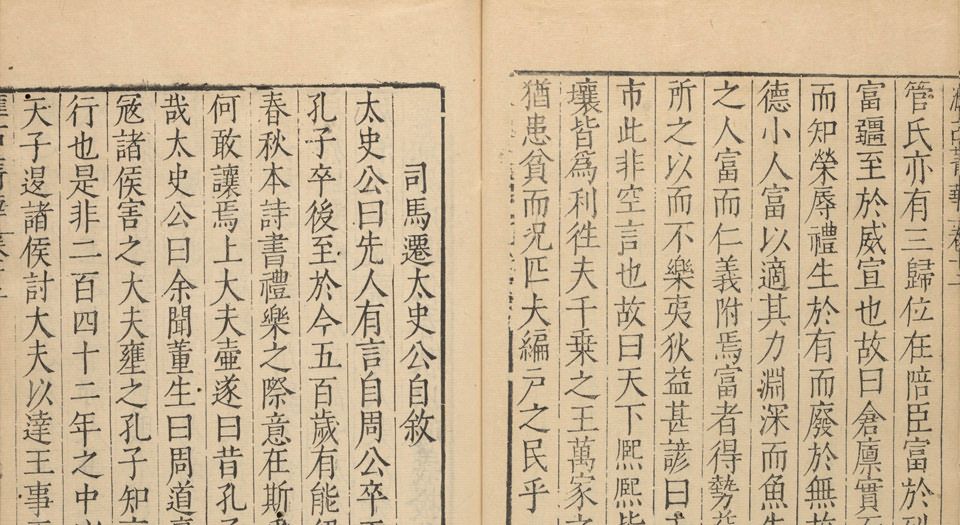 管氏亦有三歸位在陪臣富於列
富彊至於威宣也故曰倉廩實
而知榮辱禮生於有而廢於無故
德小人富以適其力淵深而魚生
之人富而仁義附焉富者得勢益
所之以而不樂夷狄益甚諺曰
市此非空言也故曰天下熈熈皆
壤皆爲利徃夫千乗之王萬家之
猶患貧而况匹夫編戶之民乎
司馬遷太史公自敘
太史公曰先人有言自周公卒五
孔子卒後至於今五百歲有能紹
春秋本詩書禮樂之際意在斯乎
何敢讓焉上大夫壺遂曰昔孔子
哉太史公曰余聞董生曰周道衰
冦諸侯害之大夫壅之孔子知
行也是非二百四十二年之中以
天子退諸侯討大夫以達王事